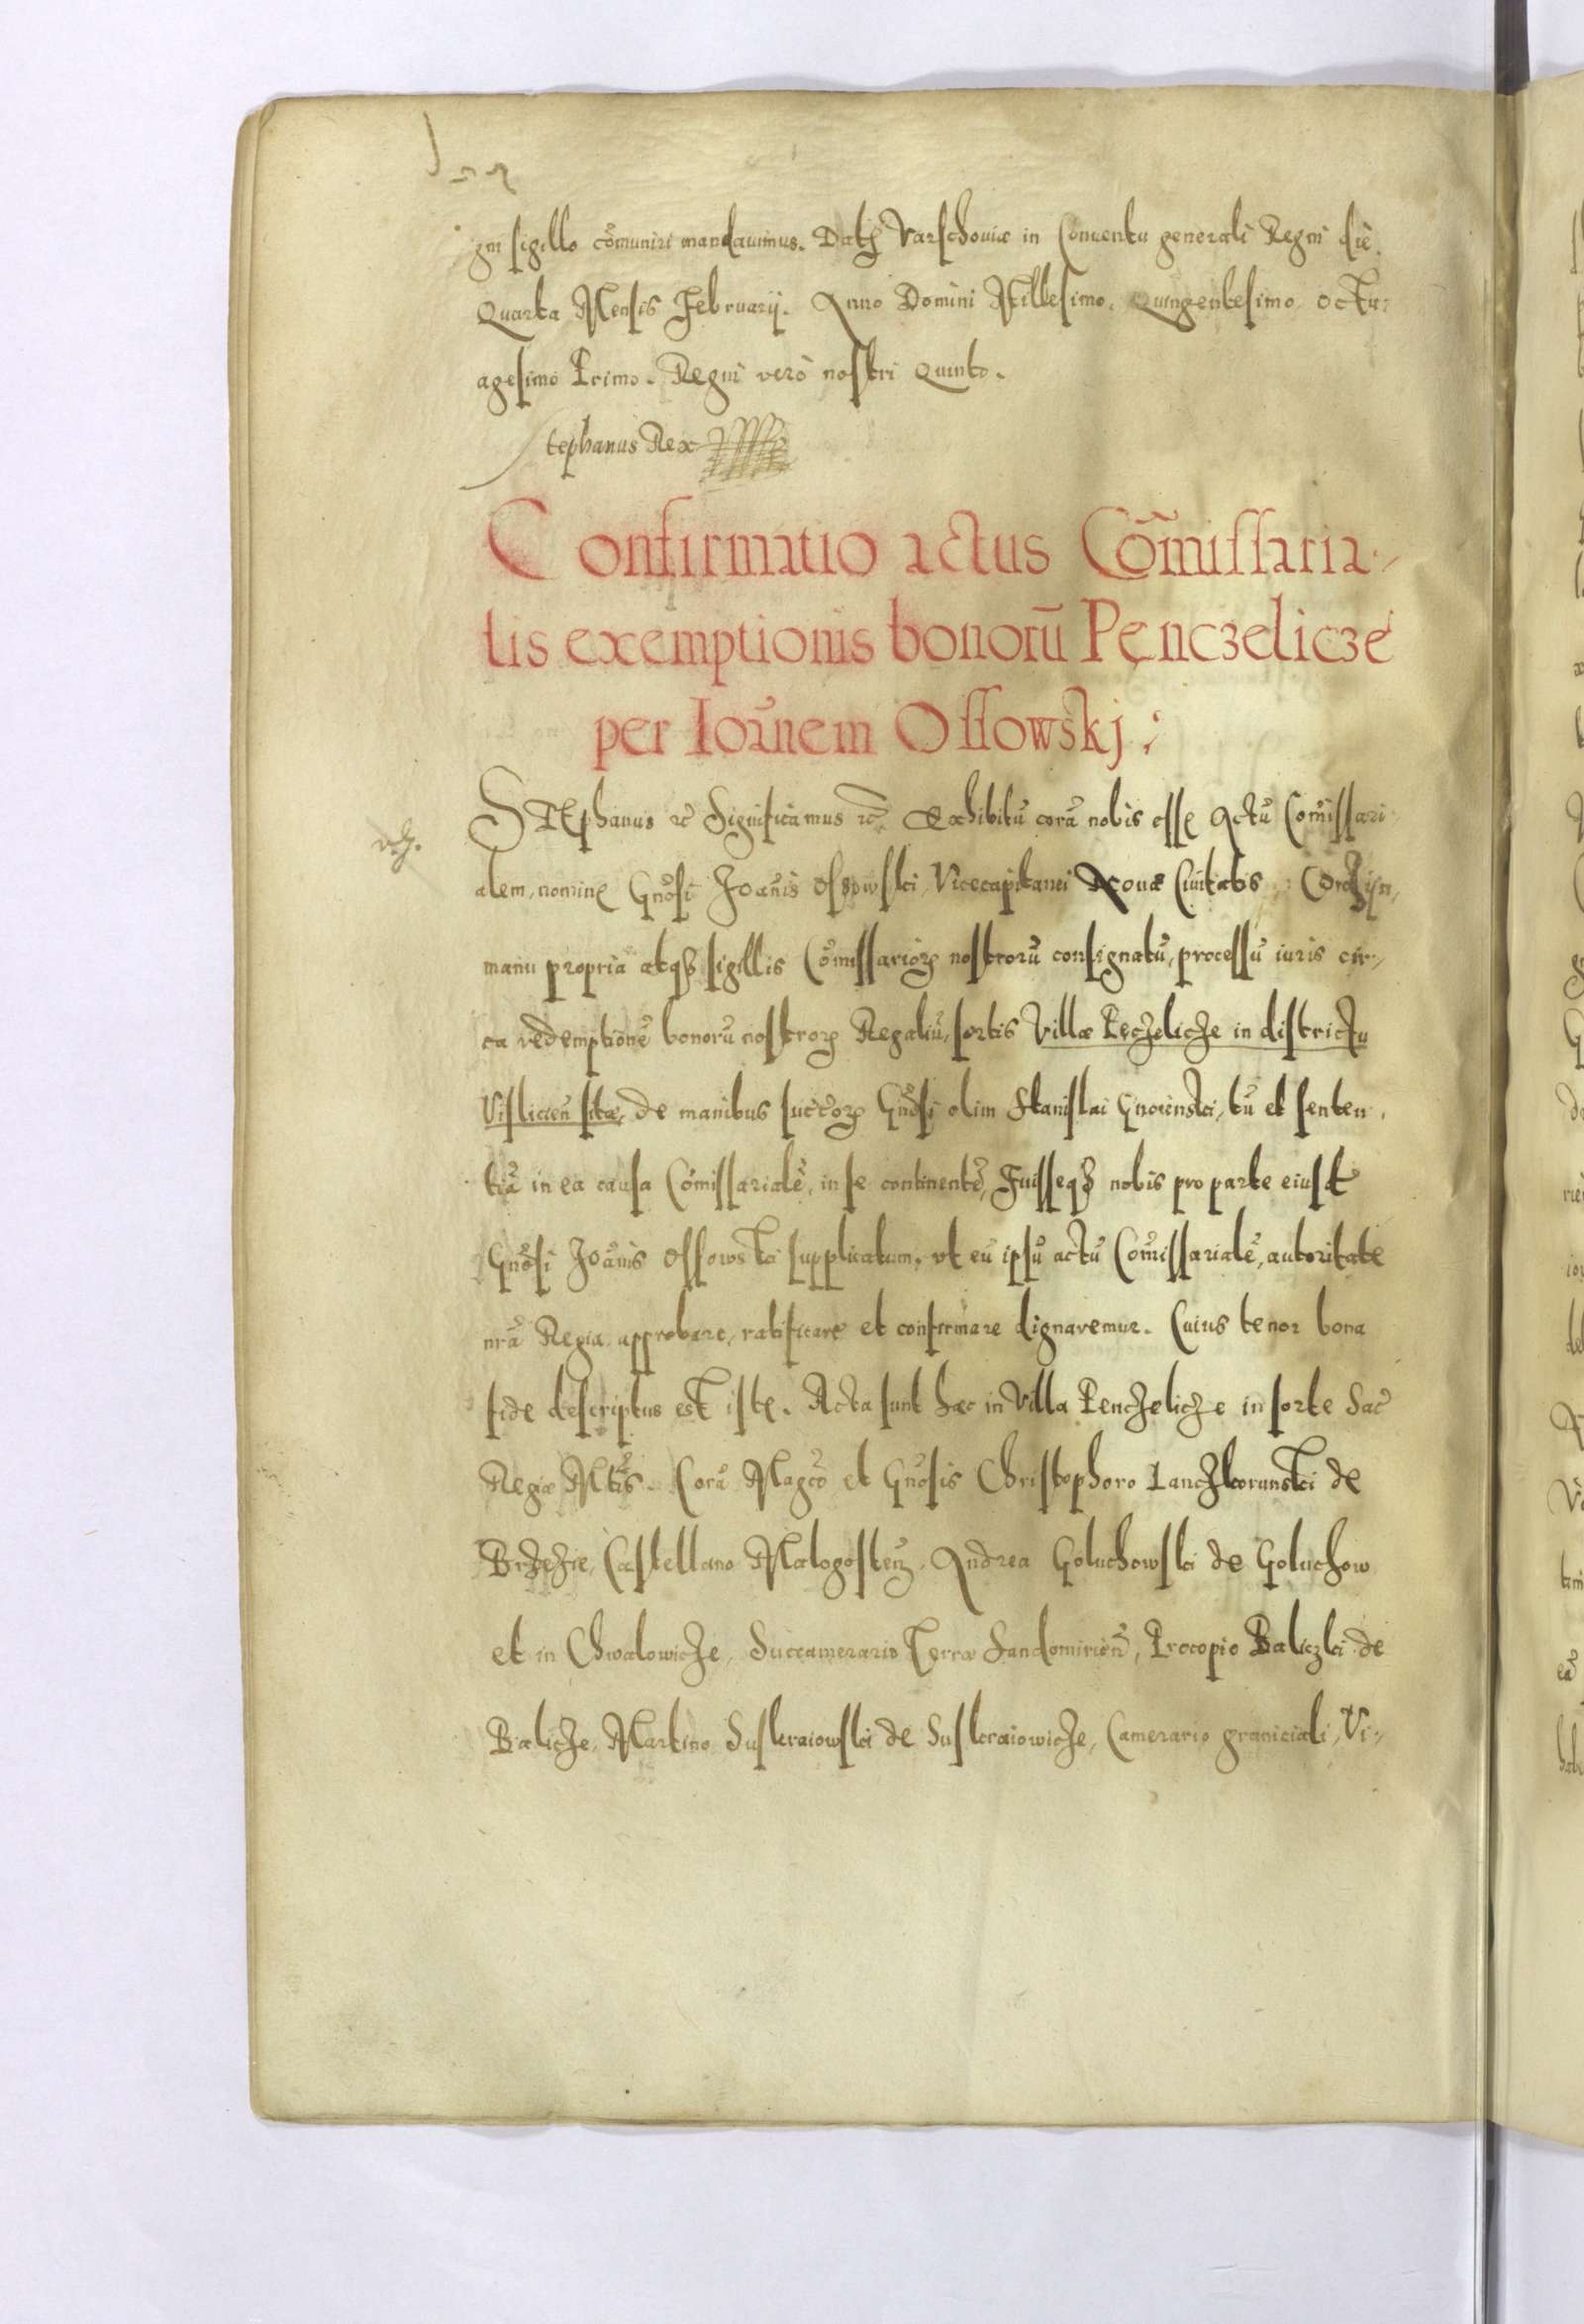 gni sigillo cõmuniri mandavimus. Datũ Varschoviæ in Conventu generali Regni die
Quarta Mensis Februarij. Anno Domini Millesimo Quingentesimo octu-
agesimo Primo. Regni verò nostri Quinto.
Stephanus Rex
Confirmatio actus Cõmissaria-
lis exemptionis bonorũ Pęnczelicze
per Ioãnem Ossowskj:
STEphanus etc Significamus etc. Exhibitũ corã nobis esse Actũ Comissari
alem, nomine Gnõsi Joãnis Ossowski, Vicecapitanei Novæ Civitatis Corczyn,
manu propria atq3 sigillis Cõmissarioꝝ nostrorũ consignatũ, processũ iuris cir-
ca redemptionẽ bonorũ nostroꝝ Regaliũ, sortis Villæ Pęczelicze in districtu
Visliciẽn sitæ, de manibus succõꝝ Gnõsi olim Stanislai Gnoienski, tũ et senten
tiã in ea causa Cõmissarialẽ, in se continentẽ, Fuisseq3 nobis pro parte eiusd
Gnõsi Joãnis Ossowski supplicatum, vt eũ ipsũ actũ Cõmissarialẽ, autoritate
nrã Regia approbare, ratificare et confirmare dignaremur. Cuius tenor bona
fide descriptus est iste. Acta sunt hæc in Villa Penczelicze in sorte Sac
Regiæ Mtis. Corã Magco et Gnõsis Christophoro Lanczkorunski de
Brzezie, Castellano Malogosteñ, Andrea Goluchowski de Goluchow
et in Chwalowicze, Succamerario Terræ Sandomiriẽn, Procopio Baliczki de
Balicze, Martino Suskraiowski de Suskraiowicze, Camerario graniciali, Vi-